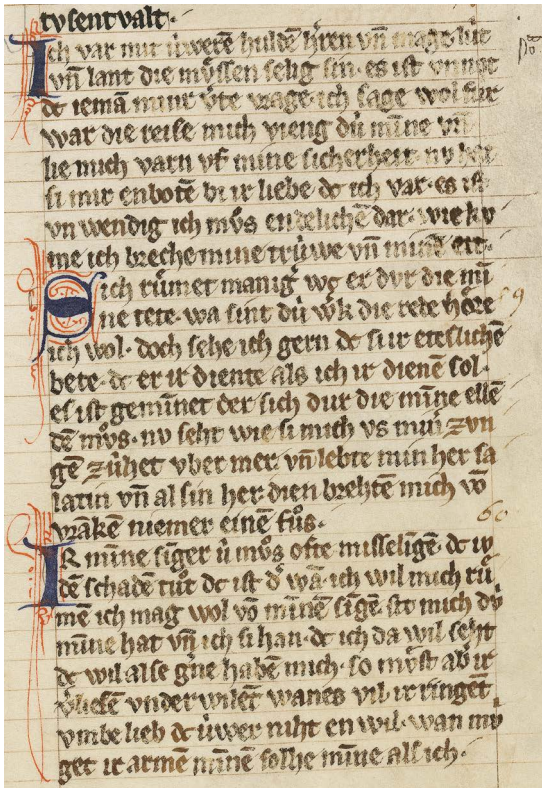 tvsent valt.
Ich var mit v́weren hulden hřen vn̄ mage lút
vn̄ lant die mv̊ssen selig sin. es ist vnnot
dc iemā mine v̓te vrage. ich sage wol fúr
war die reise mich vieng dú mīne vn̄
lie mich varn vf mine sicherheit. nv hat
si mir enbotē bi ir liebe dc ich var. es ist
vn wendig ich mv̊s endelichē dar. wie kv
me ich breche mine trúwe vn̄ minē eit.
Sich rv̊met manig̓ wc er dvr die mī
ne tete. wa sint dú w̓k die rede hôre
ich wol. doch sehe ich gern dc si ir eteslichē
bete. dc er ir diente als ich ir dienē sol.
es ist gemīnet der sich dvr die mīne ellē
dē mv̊s. nv seht wie si mich vs minr̓ zvn
gē zúhet vber mer. vn̄ lebte min her sa
latin vn̄ al sin her. dien brehtē mich vō
vrākē niemer einē fv̊s.
IR mīne sīger v́ mv̊s ofte misselīgē. dc iv
dē schadē tůt dc ist d̓ wā. ich wil mich rů
mē ich mag wol vō mīnē sīgē. sit mich dú
mīne hat vn̄ ich si han. dc ich da wil seht
dc wil alse g̓ne habē mich. so mv̊st ab̓ ir
v̓liesē vnder wilēt wanes vil. ir ringēt
vmbe lieb dc v́wer niht en wil. wan mv̊
get ir armē mīnē solhe mīne als ich.
59
60